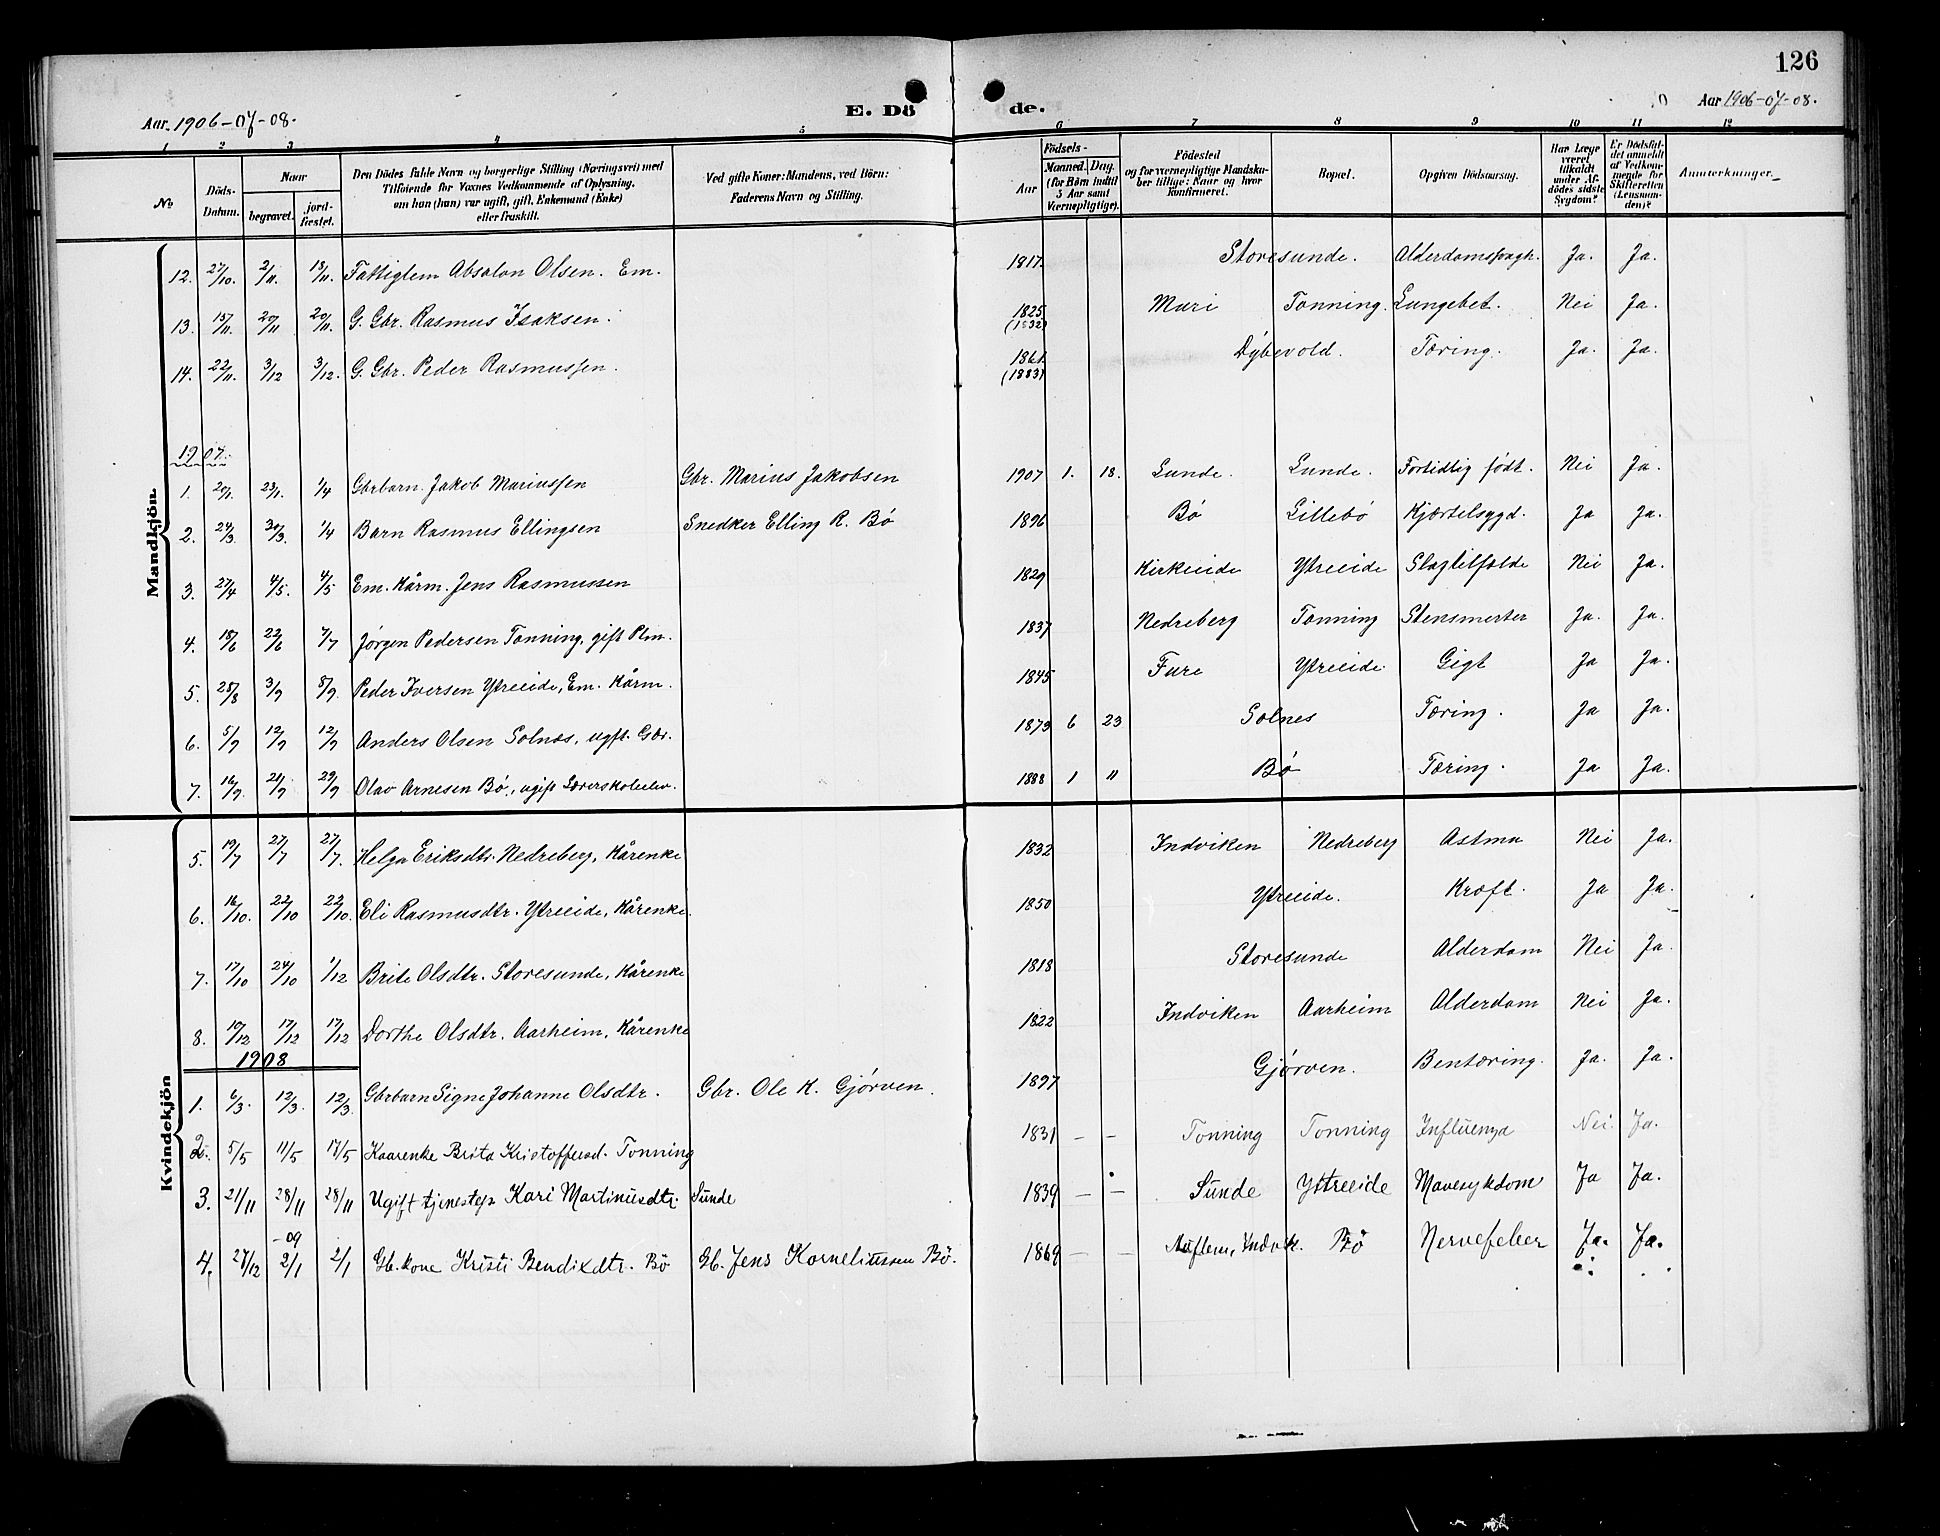 126
Aar 1906-07-08.
E. Dö
de.
Aar 1906-07-08.
1 2 3 4 5 6 7 8 9 10 11 12
No
Döds-Datum.
Naar
begravet.
jordfæstet.
Den Dödes fulde Navn og borgerlige Stilling (Næringsvei) med Tilföiende for Voxnes Vedkommende af Oplysning, om han (hun) var ugift, gift, Enkemand (Enke) eller fraskilt.
Ved gifte Koner: Mandens, ved Börn: Faderens Navn og Stilling.
Födsels-
Aar
Maaned. Dag.
(for Börn indtil 5 Aar samt Værnepligtige).
Födested og for værnepligtige Mandskaber tillige: Naar og hvor konfirmeret.
Bopæl.
Opgiven Dödsaarsag.
Har Læge været tilkaldt under Afdödes sidste Sygdom?
Er Dödsfaldet anmeldt af Vedkommende for Skifteretten (Lensmanden)?
Anmærkninger.
Mandkjön.
12. 27/10. 2/11. 18/11. Fattiglem Absalon Olsen. Em. 1817. Storesunde. Ja. Ja.
13. 15/11. 20/11 20/11. G. Gbr. Rasmus Isaksen. 1825. (1832) Muri Tonning. Lungebet. Nei Ja.
14. 22/11. 3/12 3/12. G. Gbr. Peder Rasmussen. 1861. (1883) Dybevold. Tæring. Ja. Ja.
1907.
1. 20/1. 23/1. 1/4 Gbrbarn. Jakob Mariussen Gbr. Marius Jakobsen 1907 1. 18. Lunde. Lunde. Fortidlig født. Nei Ja.
2. 24/3. 30/3. 1/4 Barn Rasmus Ellingsen Snedker Elling R. Bø 1896 Bø Lillebø Kjertelsygd. Ja Ja.
3. 27/4 4/5. 4/5 Em. Kårm. Jens Rasmussen 1829 Kirkeeide Ytreeide Slagtilfælde Nei Ja.
4. 18/6 22/6 7/7 Jørgen Pedersen Tonning, gift Plm. 1837 Nedreberg Tonning Stensmerter Ja. Ja.
5. 28/8 3/9 8/9. Peder Iversen Ytreeide, Em. Kårm. 1845 Fure Ytreeide Gigt Ja Ja.
6. 5/9 12/9 12/9 Anders Olsen Solnes, ugft. Gbr. 1873 6 23 Solnes Tæring. Ja Ja.
7. 16/9. 21/9 29/9 Olav Arnesen Bø, ugift Lærerskoleelev. 1888 1 11 Bø Tæring. Ja Ja.
Kvindekjön
5. 19/7 27/7 27/7. Helga Eriksdtr. Nedreberg, Kårenke 1832 Indviken Nedreberg Astma Nei Ja.
6. 16/10. 22/10 22/10. Eli Rasmusdtr. Ytreeide, Kårenke. 1850 Ytreeide. Kræft. Ja Ja.
7. 17/10 24/10 1/12 Brite Olsdtr. Storesunde, Kårenke 1818 Storesunde Alderdom Nei Ja.
8. 10/12 17/12 17/12 Dorthe Olsdtr. Aarheim, Kårenke 1822 Indviken Aarheim Alderdom Nei Ja.
1908
1. 6/3. 12/3. 12/3 Gbrbarn Signe Johanne Olsdtr. Gbr. Ole K. Gjørven. 1897 Gjørven. Bentæring. Ja. Ja.
2. 5/5 11/5 17/5 Kaarenke Brita Kristoffersd. Tonning 1831 - - Tonning Tonning Influenza Nei. Ja.
3. 21/11 28/11 28/11 Ugift tjenestep Kari Martinusdtr. Sunde 1839 - - Sunde Ytreeide Mavesykdom Ja Ja.
4. 27/12 -09 2/1 2/1 Gb. kone Kristi Bendixdtr. Bö Gb. Jens Korneliussen Bö. 1869 - - Bö Nervefeber Ja. Ja.